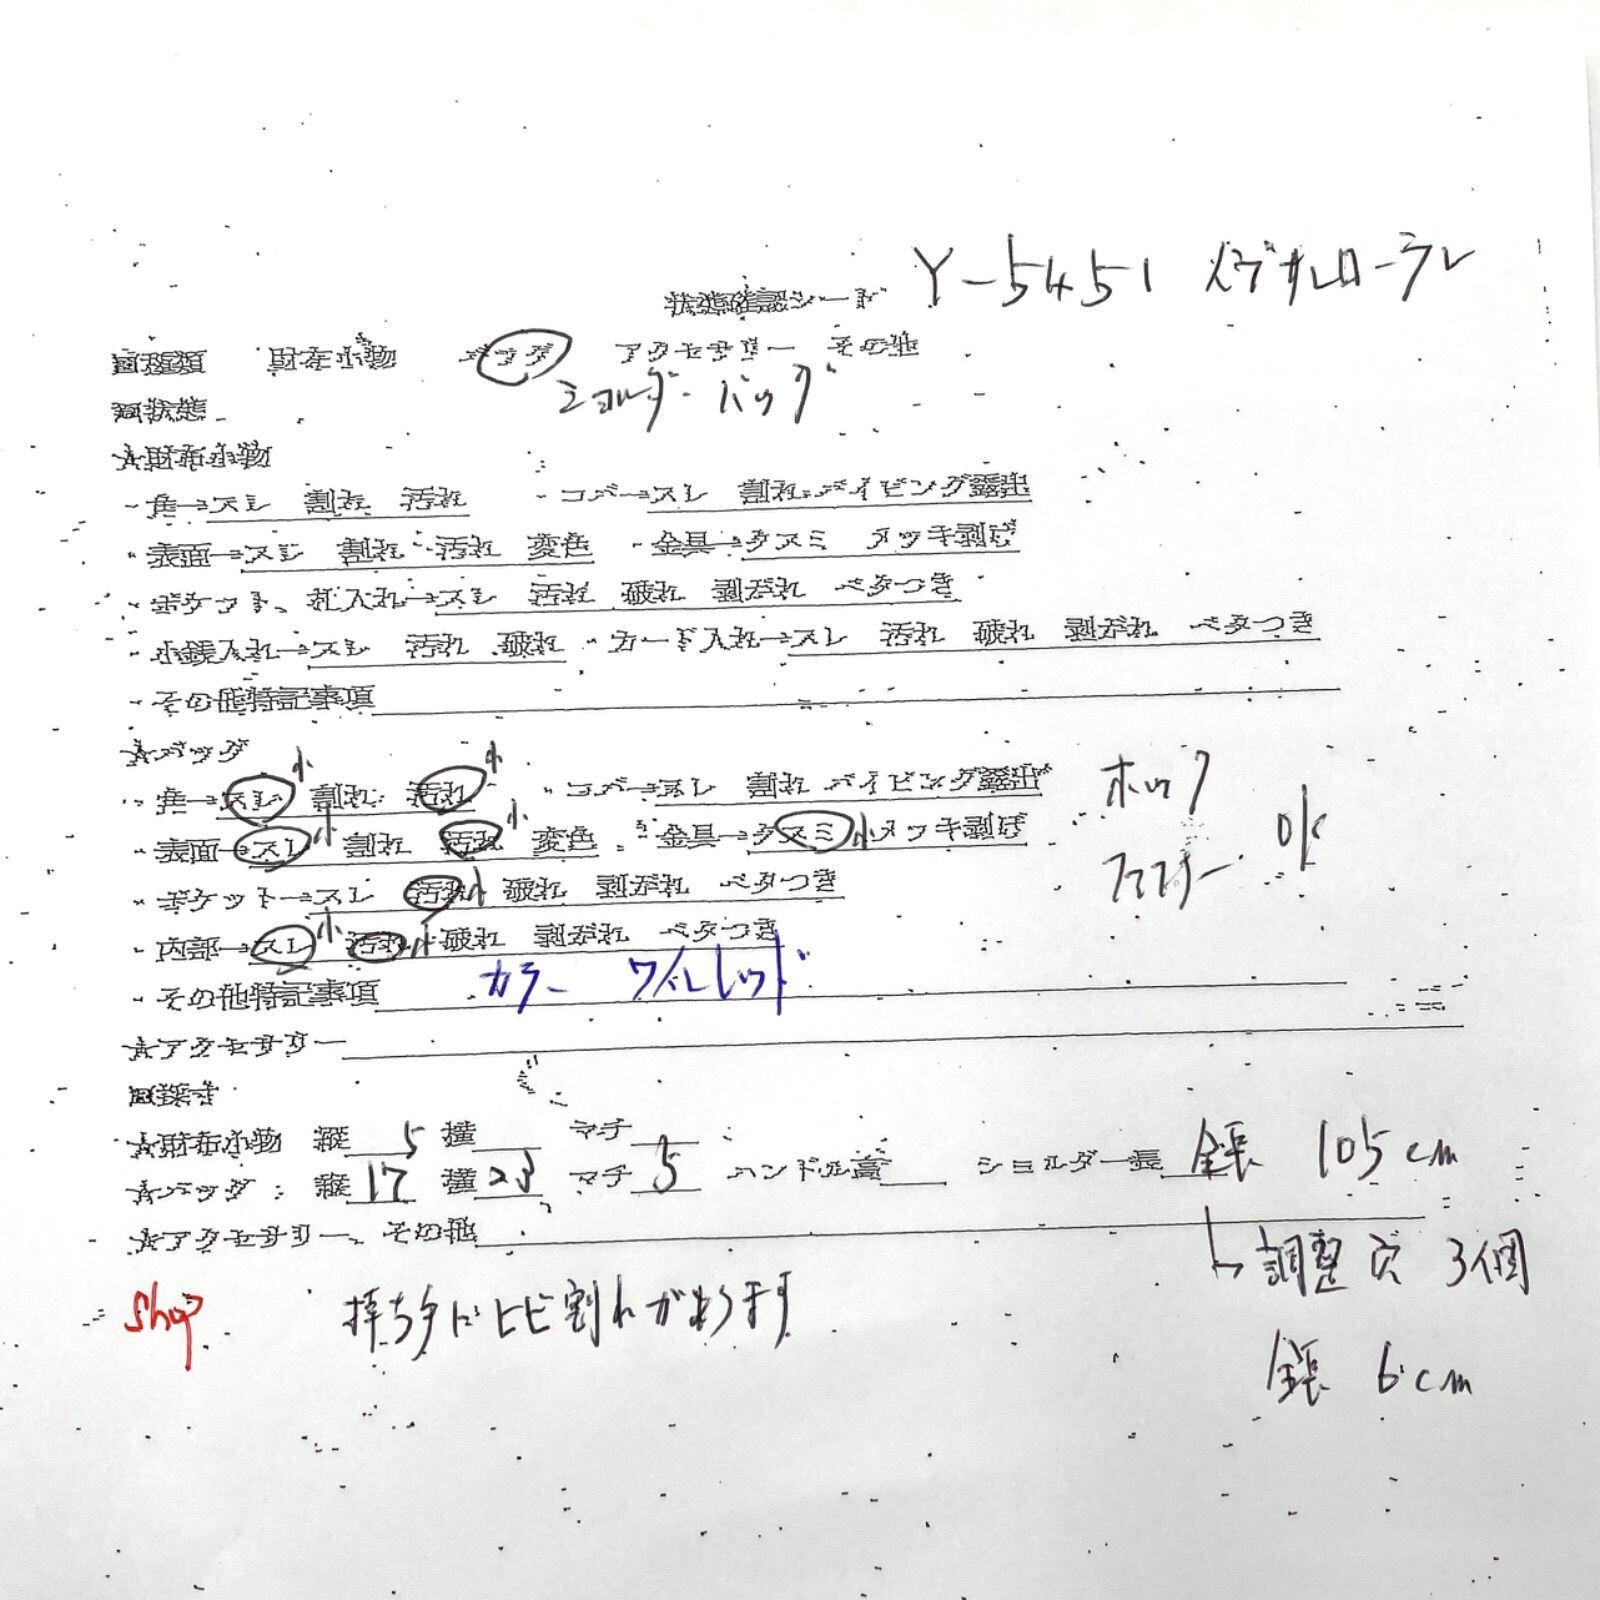 状態確認シート Y-5451 イヴサンローラン
□種類 財布小物 バッグ アクセサリー その他
ショルダーバッグ
□状態
☆財布小物
・角→スレ 割れ 汚れ ・コバ→スレ 割れ パイピング露出
・表面→スレ 割れ 汚れ 変色 ・金具→クスミ メッキ剥げ
・ポケット、札入れ→スレ 汚れ 破れ 剥がれ ベタつき
・小銭入れ→スレ 汚れ 破れ ・カード入れ→スレ 汚れ 破れ 剥がれ ベタつき
・その他特記事項
☆バッグ
・角→スレ小 割れ 汚れ小 ・コバ→スレ 割れ パイピング露出 ホック
・表面→スレ小 割れ 汚れ小 変色 ・金具→クスミ小 メッキ剥げ OK
・ポケット→スレ 汚れ小 破れ 剥がれ ベタつき ファスナー
・内部→スレ小 汚れ小 破れ 剥がれ ベタつき
・その他特記事項 カラー ワインレッド
☆アクセサリー
□採寸
☆財布小物 縦 5 横 マチ
☆バッグ : 縦 17 横 23 マチ 5 ハンドル高 ショルダー長 全長 105cm
☆アクセサリー、その他
↳調整穴 3個
shop 持ち手にヒビ割れがあります
全長 6cm